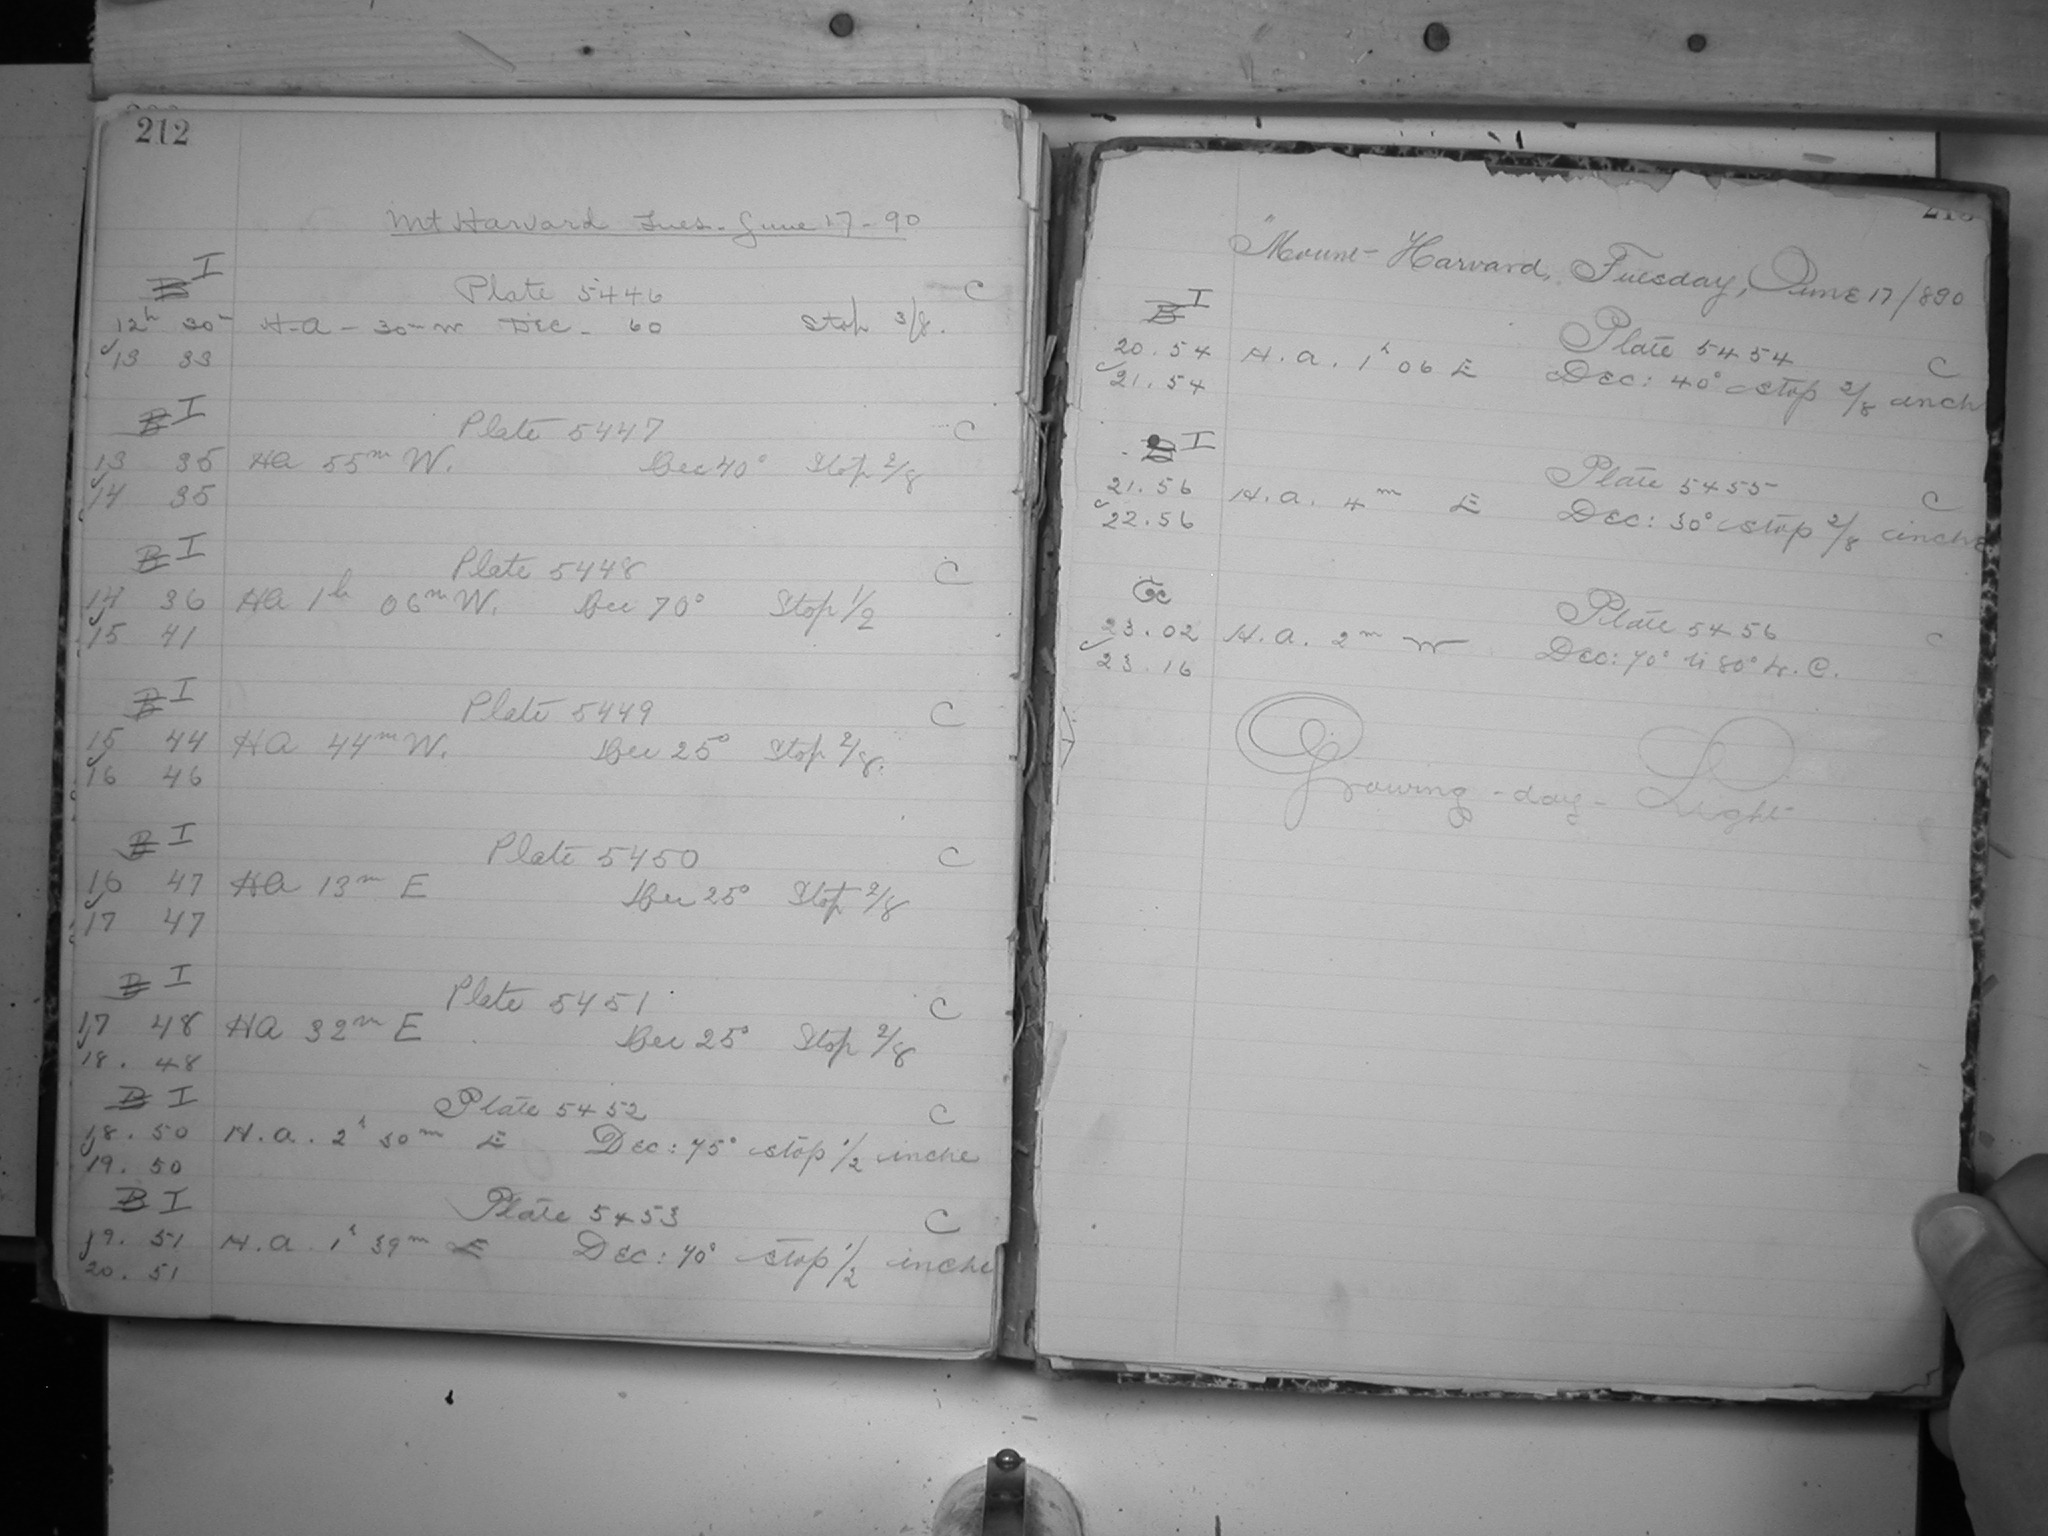 212
Mt Harvard Tues. June 17-90
B I
Plate 5446 C
12h 30m H-A - 30m W Dec - 60 Stop 3/8.
13 33
B I
Plate 5447 C
13 35 HA 55m W. Dec 40° Stop 2/8
14 35
B I
Plate 5448 C
14 36 HA 1h 06m W. Dec 70° Stop 1/2
15 41
B I
Plate 5449 C
15 44 HA 44m W. Dec 25° Stop 2/8.
16 46
B I
Plate 5450 C
16 47 HA 13m E Dec 25° Stop 2/8
17 47
B I
Plate 5451 C
17 48 HA 32m E Dec 25° Stop 2/8
18. 48
B I
Plate 5452 C
18. 50 H.a. 2h 30m E Dec: 75° stop 1/2 inche
19. 50
B I
Plate 5453 C
19. 51 H.a. 1h 39m E Dec: 70° stop 1/2 inche
20. 51
"Mount-Harvard, Tuesday, June 17/890
B I
Plate 5454 C
20.54 H.a. 1h 06 E Dec: 40° stop 2/8 inch
21.54
B I
Plate 5455 C
21.56 H.a. 4m E Dec: 30° stop 2/8 inche
22.56
Plate 5456 C
23.02 H.a. 2m W Dec: 70° 80° C.
23.16
Growing-day-Light